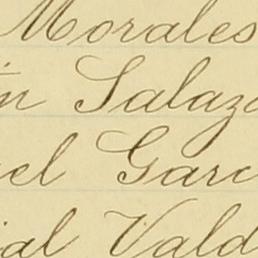 Morales
ín Salaza
el Garc
ial Vald